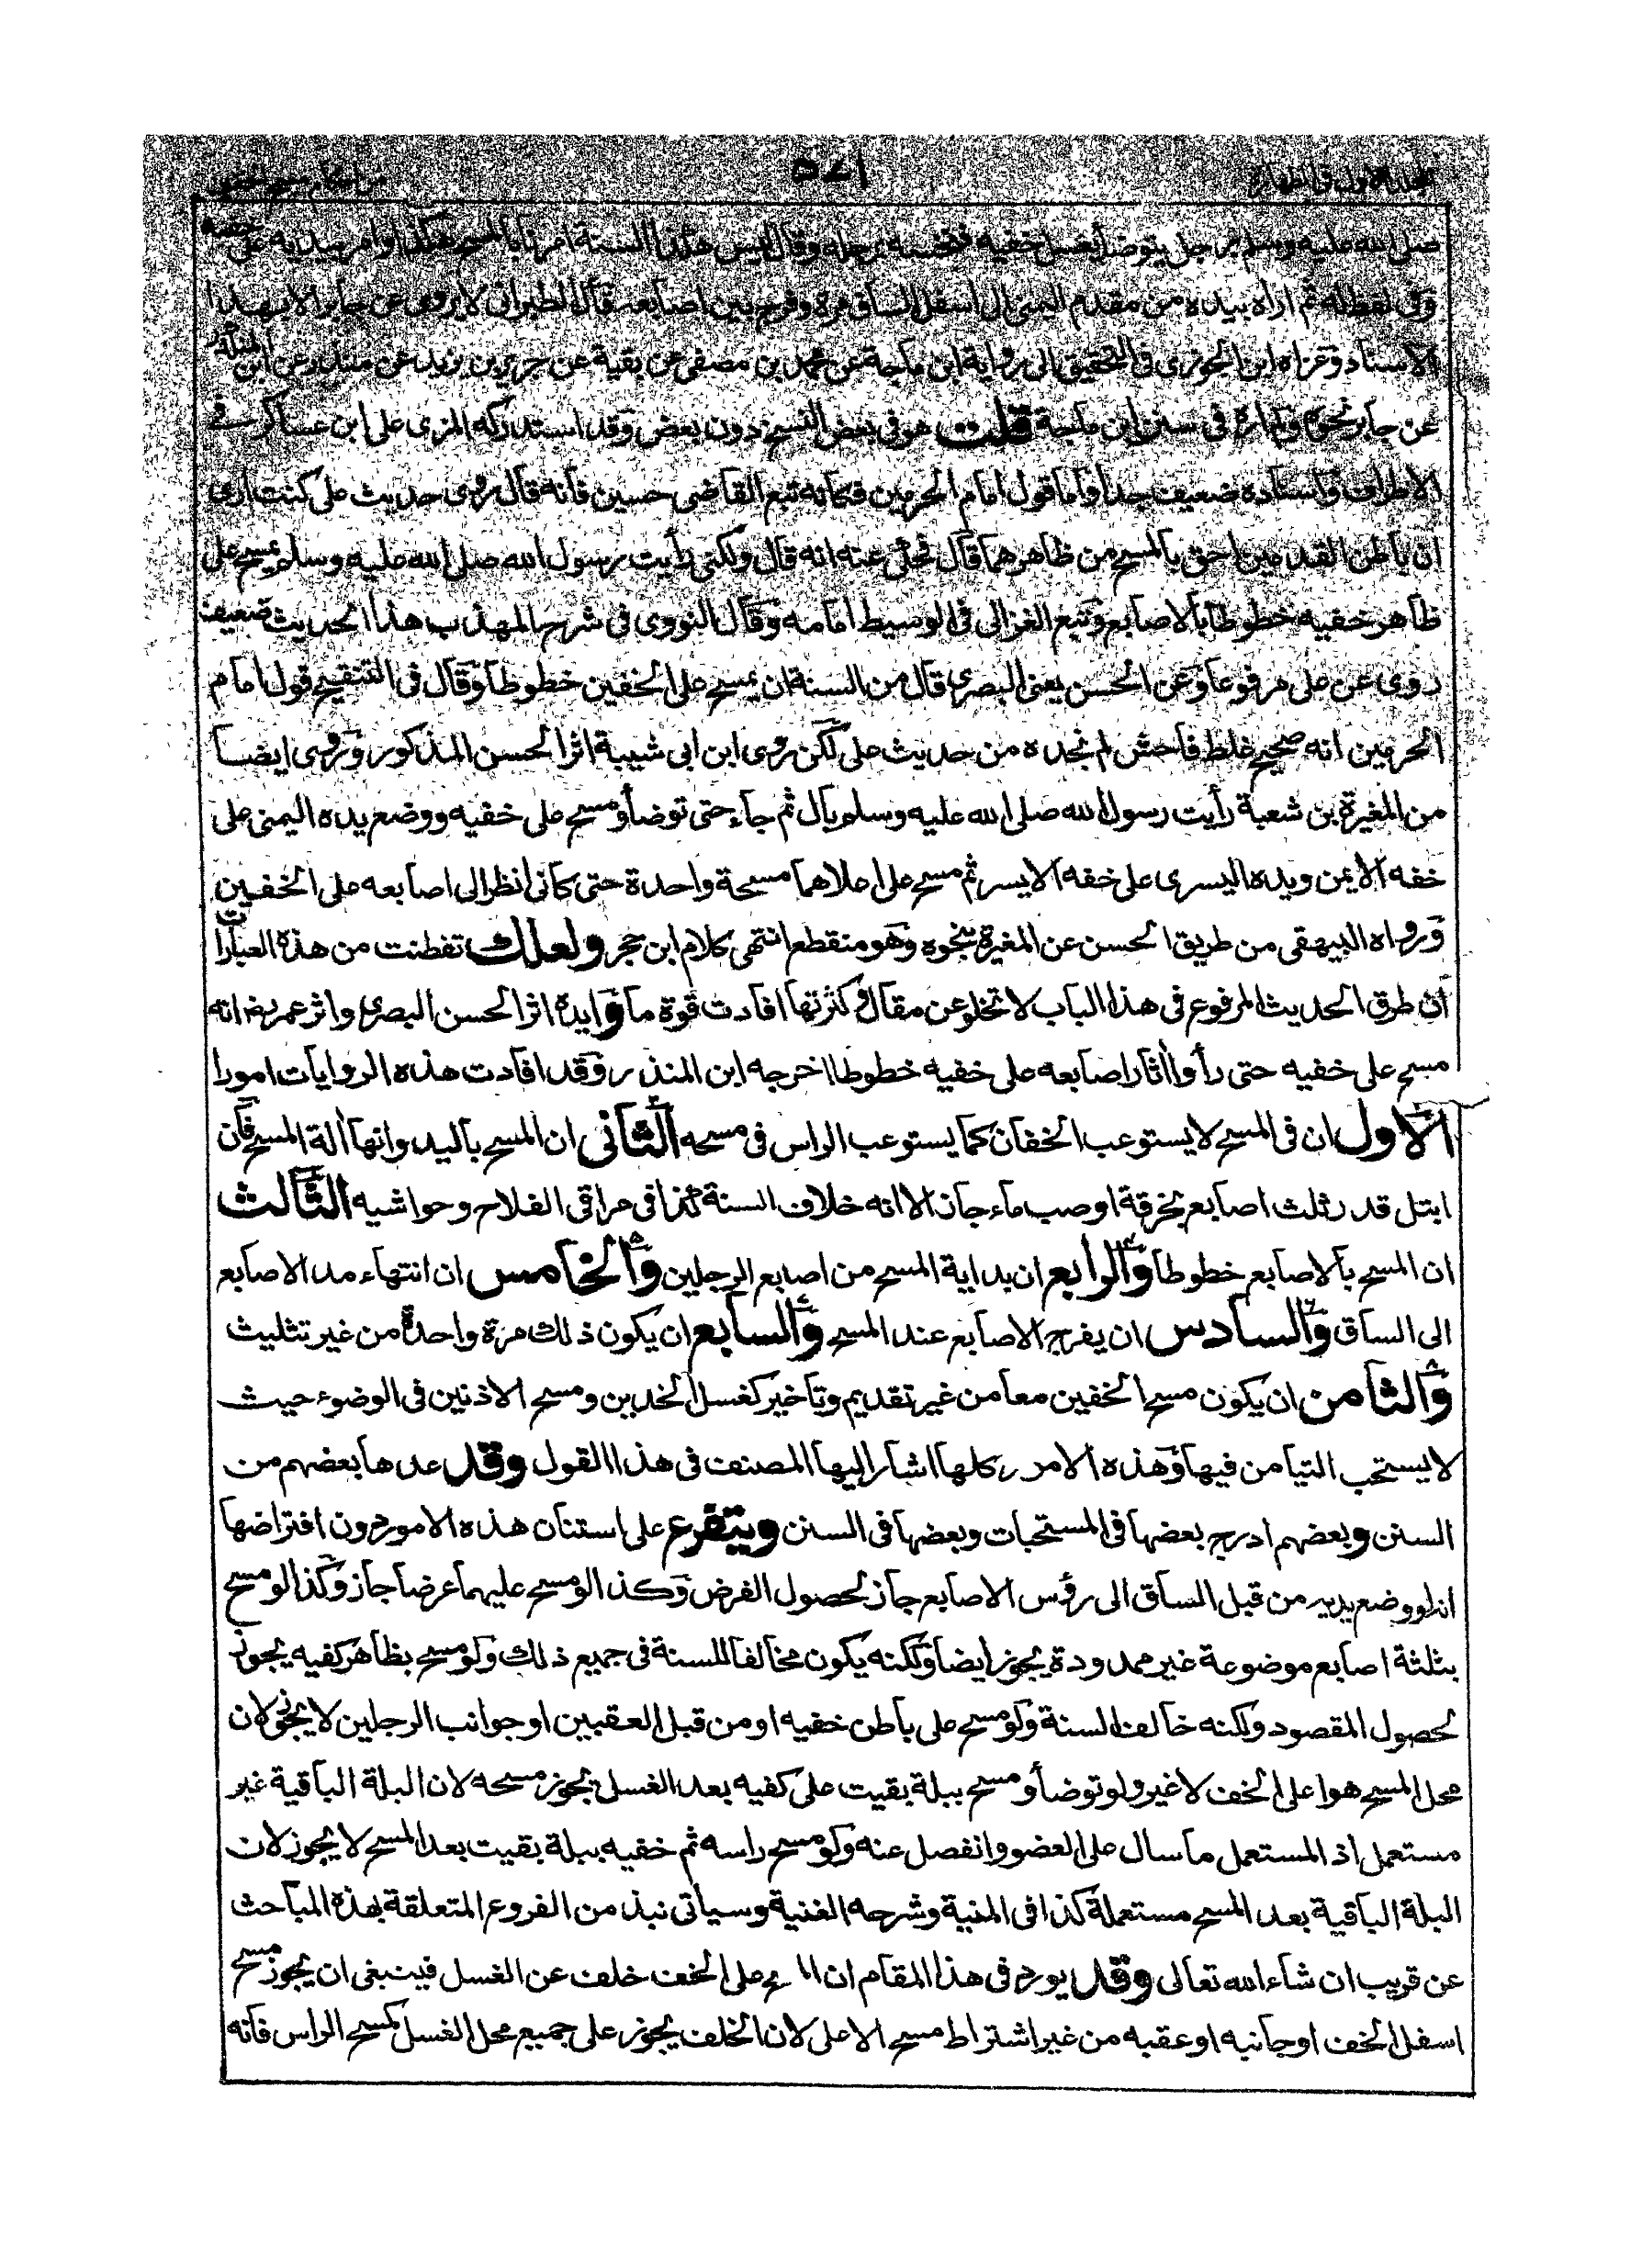 المجلد الاول في الطهارة ٥٧١
صلى الله عليه وسلم برجل يتوضأ يغسل خفيه فنخسه برجله وقال ليس هكذا السنة امرنا بالمسح هكذا وامر بيديه على خفيه
وفي لفظ له ثم اراه بيده من مقدم اليمنى الى اسفل الساق مرة وفرج بين اصابعه قال الطبراني لا يروى عن جابر الا بهذا
الاسناد وعزاه ابن الجوزي في التحقيق الى رواية ابن ماجة عن محمد بن مصفى عن بقية عن جرير بن يزيد عن منذر عن ابن المنكدر
عن جابر نحوه ولم اره في سنن ابن ماجة قلت هو في بعض النسخ دون بعض وقد استدركه المزى على ابن عساكر في
الاطراف واسناده ضعيف جدا واما قول امام الحرمين فكانه تبع القاضى حسين فانه قال روى حديث على كنت ارى
ان باطن القدمين احق بالمسح من ظاهرهما قال فحكى عنه انه قال ولكنى رأيت رسول الله صلى الله عليه وسلم يمسح على
ظاهر خفيه خطوطا بالاصابع وتبع الغزالى في الوسيط امامه وقال النووى في شرح المهذب هذا الحديث ضعيف
روى عن على مرفوعا وعن الحسن يعنى البصرى قال من السنة ان يمسح على الخفين خطوطا وقال في التنقيح قول امام
الحرمين انه صحيح غلط فاحش لم نجده من حديث على لكن روى ابن ابى شيبة اثر الحسن المذكور وروى ايضا
من المغيرة بن شعبة رأيت رسول الله صلى الله عليه وسلم بال ثم جاء حتى توضأ ومسح على خفيه ووضع يده اليمنى على
خفه الايمن ويده اليسرى على خفه الايسر ثم مسح على اعلاهما مسحة واحدة حتى كانى انظر الى اصابعه على الخفين
ورواه البيهقى من طريق الحسن عن المغيرة بنحوه وهو منقطع انتهى كلام ابن حجر ولعلك تفطنت من هذه العبارات
ان طرق الحديث المرفوع في هذا الباب لا تخلو عن مقال وكثرتها افادت قوة ما وايده اثر الحسن البصرى واثر عمر رض انه
مسح على خفيه حتى رأوا اثار اصابعه على خفيه خطوطا اخرجه ابن المنذر وقد افادت هذه الروايات امورا
الاول ان في المسح لا يستوعب الخفان كما يستوعب الراس في مسحه الثانى ان المسح باليد وانها الة المسح فان
ابتل قدر ثلث اصابع بخرقة او صب ماء جاز الا انه خلاف السنة كذا في مراقى الفلاح وحواشيه الثالث
ان المسح بالاصابع خطوطا والرابع ان بداية المسح من اصابع الرجلين والخامس ان انتهاء مد الاصابع
الى الساق والسادس ان يفرج الاصابع عند المسح والسابع ان يكون ذلك مرة واحدة من غير تثليث
والثامن ان يكون مسح الخفين معا من غير تقديم وتاخير كغسل الخدين ومسح الاذنين في الوضوء حيث
لا يستحب التيامن فيها وهذه الامور كلها اشار اليها المصنف في هذا القول وقد عدها بعضهم من
السنن وبعضهم ادرج بعضها في المستحبات وبعضها في السنن ويتفرع على استنان هذه الامور دون افتراضها
انه لو وضع يديه من قبل الساق الى رؤس الاصابع جاز لحصول الفرض وكذا لو مسح عليهما عرضا جاز وكذا لو مسح
بثلثة اصابع موضوعة غير ممدودة يجوز ايضا ولكنه يكون مخالفا للسنة في جميع ذلك ولو مسح بظاهر كفيه يجوز
لحصول المقصود ولكنه خالف السنة ولو مسح على باطن خفيه او من قبل العقبين او جوانب الرجلين لا يجوز لان
محل المسح هو اعلى الخف لا غير ولو توضأ ومسح ببلة بقيت على كفيه بعد الغسل يجوز مسحه لان البلة الباقية غير
مستعمل اذ المستعمل ما سال على العضو وانفصل عنه ولو مسح راسه ثم خفيه ببلة بقيت بعد المسح لا يجوز لان
البلة الباقية بعد المسح مستعملة كذا في المنية وشرحه الغنية وسيأتى نبذ من الفروع المتعلقة بهذه المباحث
عن قريب ان شاء الله تعالى وقد يورد في هذا المقام ان المسح على الخف خلف عن الغسل فينبغى ان يجوز مسح
اسفل الخف او جانبه او عقبه من غير اشتراط مسح الاعلى لان الخلف يجوز على جميع محل الغسل كمسح الراس فانه